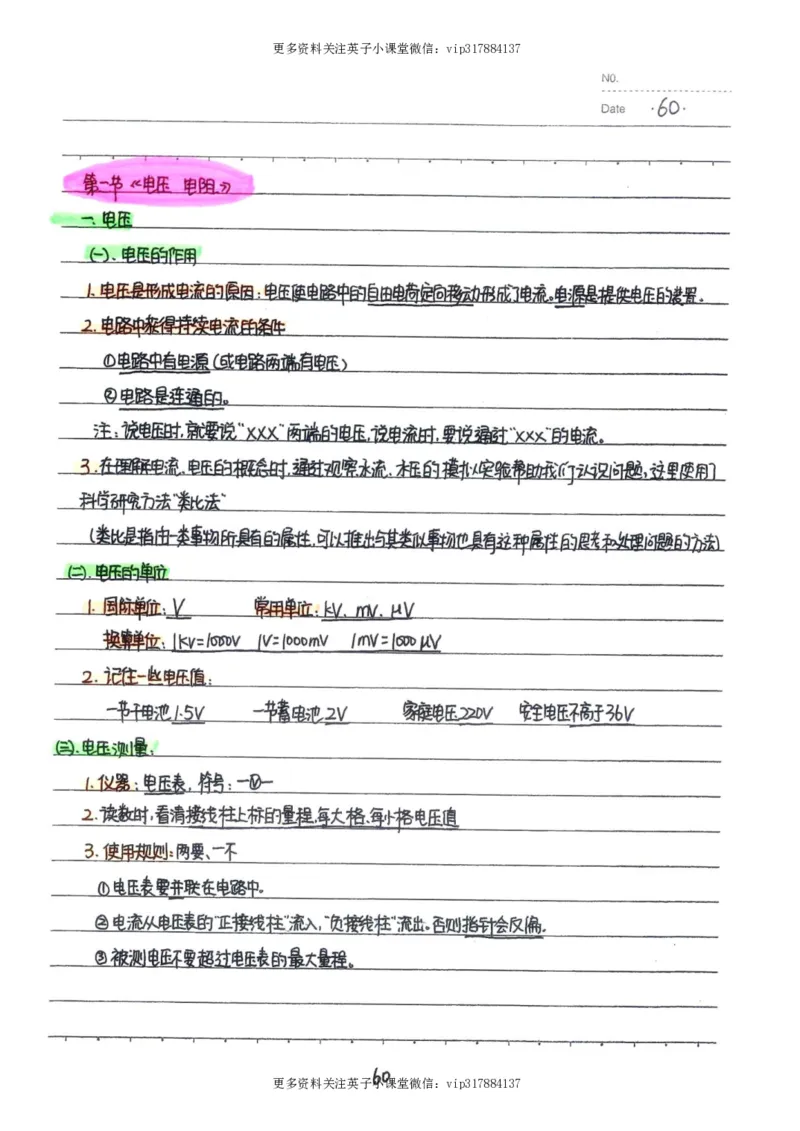 更多资料关注英子小课堂微信：vip317884137
NO.
Date ·60·
第一节《电压 电阻》
一、电压
(一)、电压的作用
1.电压是形成电流的原因：电压使电路中的自由电荷定向移动形成了电流。电源是提供电压的装置。
2.电路中获得持续电流的条件
①电路中有电源（或电路两端有电压）
②电路是连通的。
注：说电压时,就要说“XXX”两端的电压,说电流时,要说通过“XXX”的电流。
3.在理解电流、电压的概念时,通过观察水流、水压的模拟实验帮助我们认识问题,这里使用了
科学研究方法“类比法”
(类比是指由一类事物所具有的属性,可以推出与其类似事物也具有这种属性的思考和处理问题的方法)
(二).电压的单位
1.国际单位：V 常用单位：kV、mV、μV
换算单位：1kV=1000V 1V=1000mV 1mV=1000μV
2.记住一些电压值：
一节干电池1.5V 一节蓄电池2V 家庭电压220V 安全电压不高于36V
(三).电压测量：
1.仪器：电压表，符号：—Ⓥ—
2.读数时,看清接线柱上标的量程,每大格、每小格电压值
3.使用规则：两要、一不
①电压表要并联在电路中。
②电流从电压表的“正接线柱”流入,“负接线柱”流出。否则指针会反偏.
③被测电压不要超过电压表的最大量程。
60
更多资料关注英子小课堂微信：vip317884137